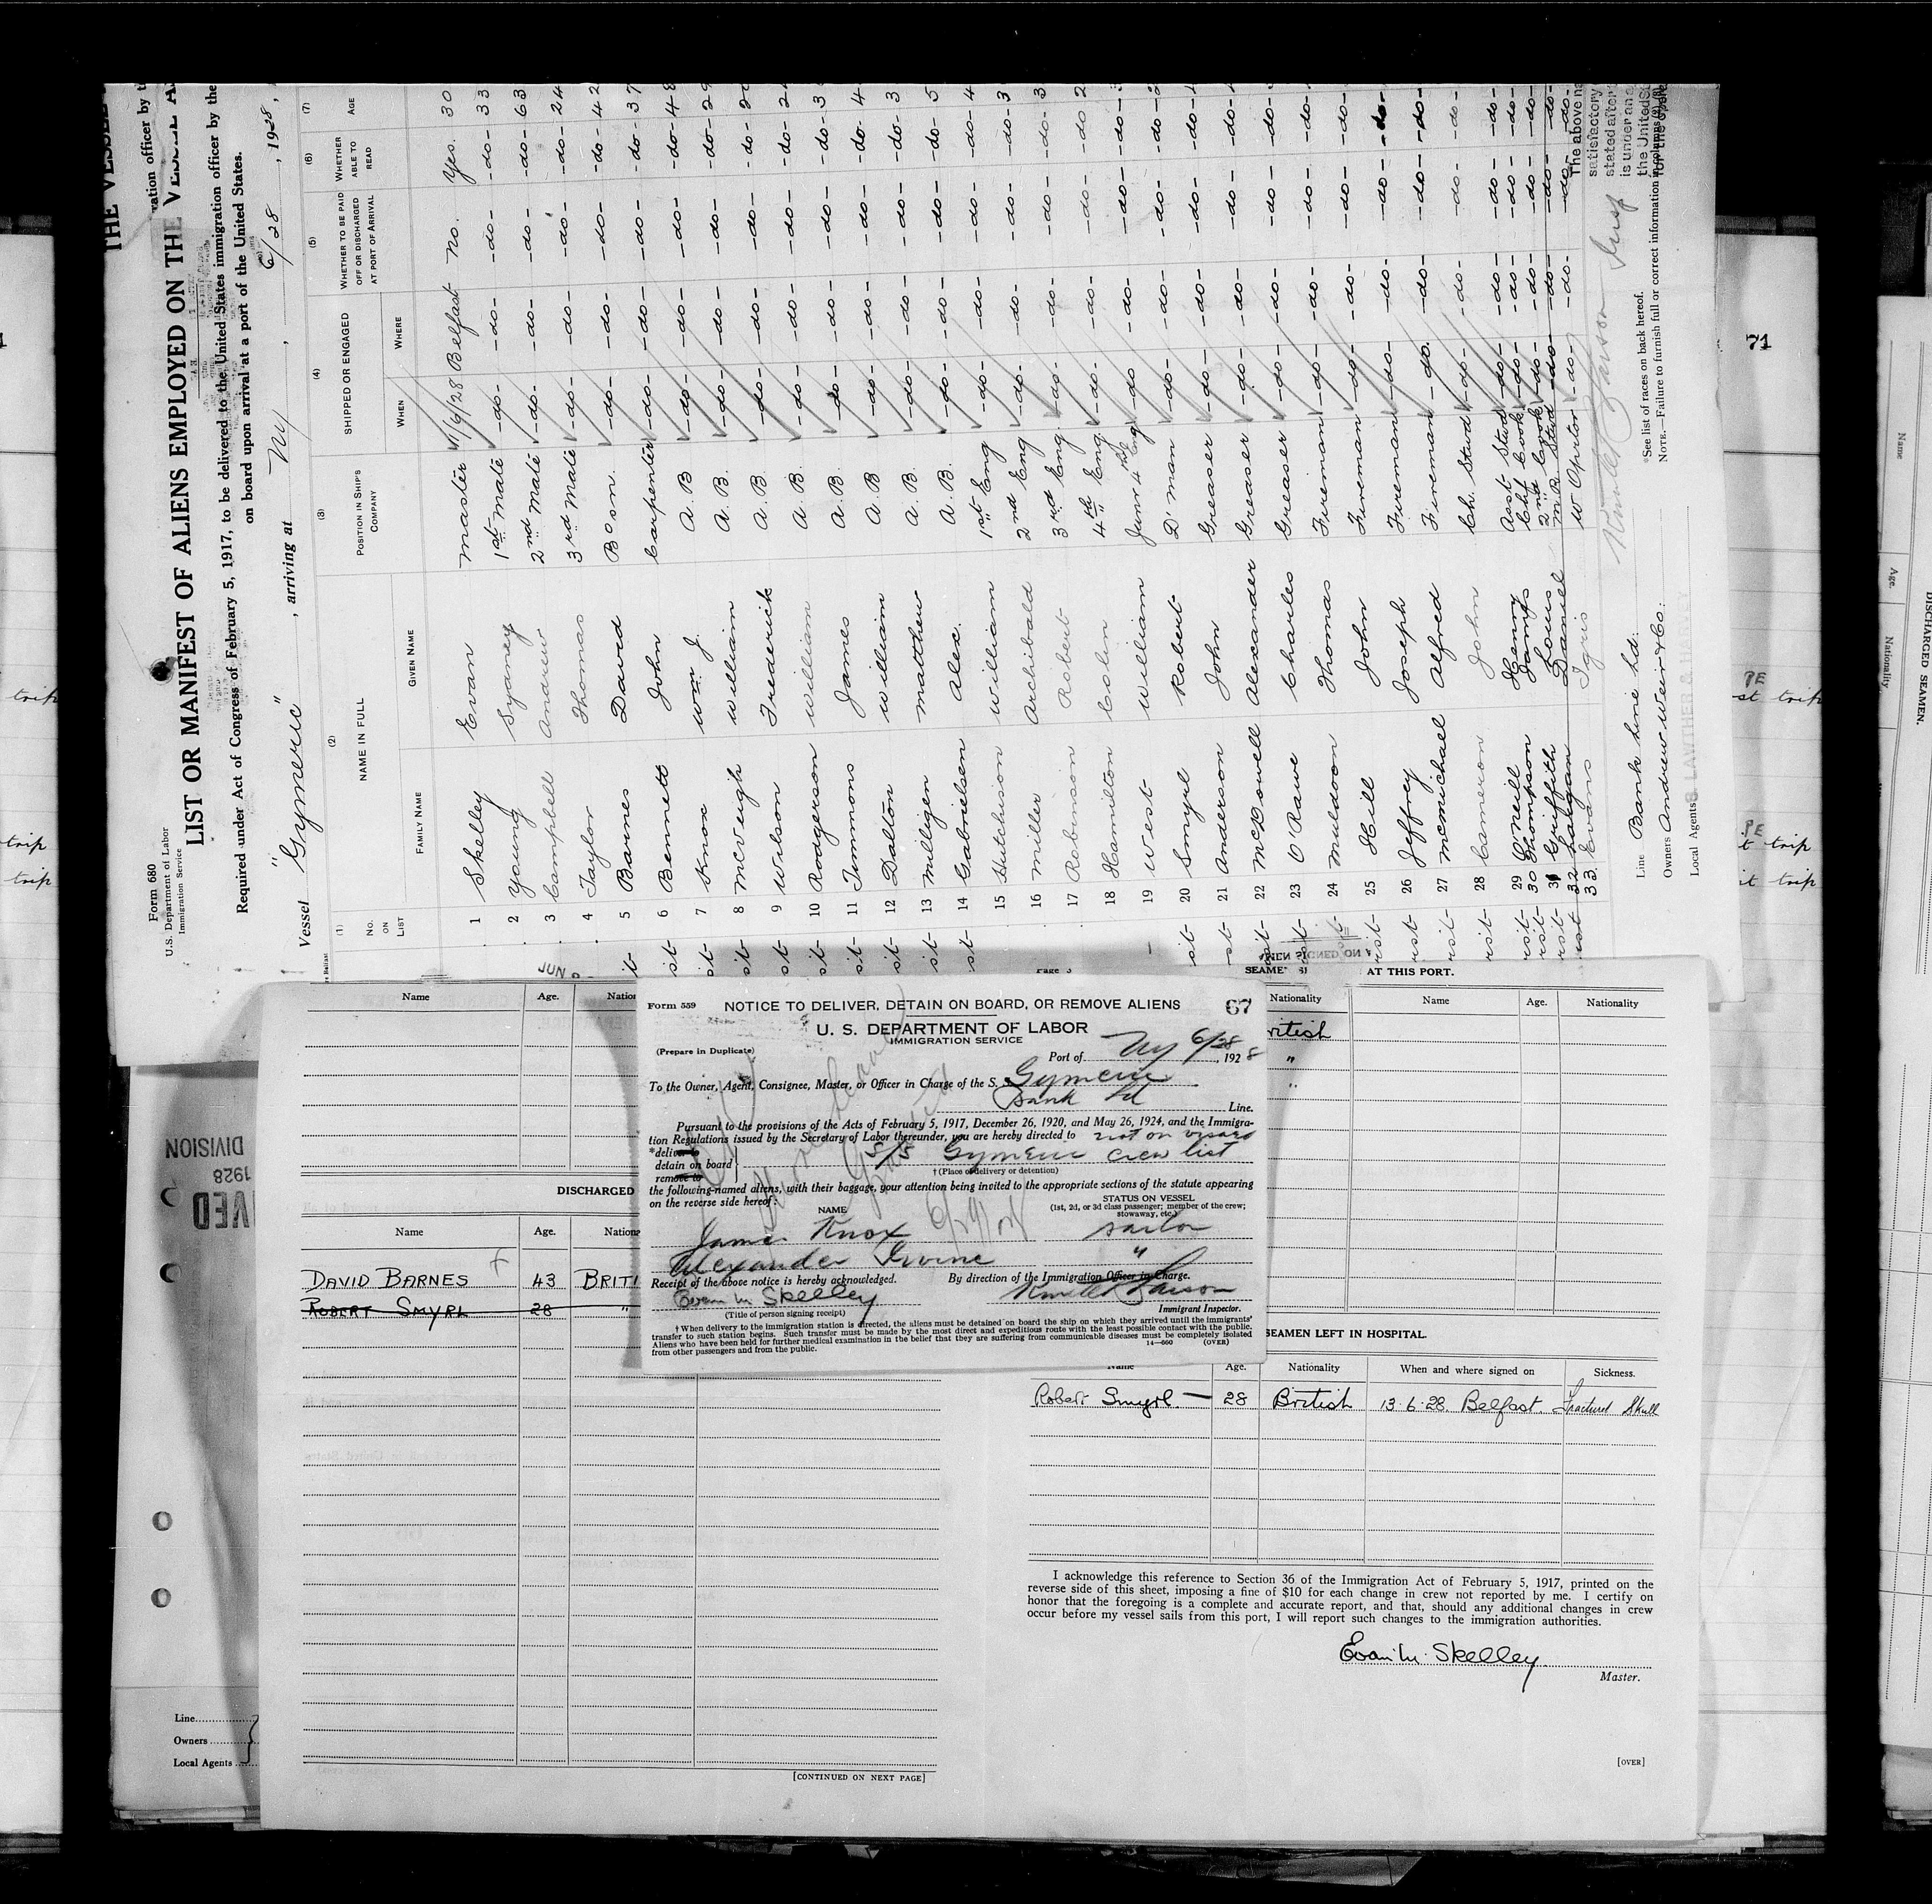 THE VESSEL
Form 680
U.S. Department of Labor
Immigration Service
LIST OR MANIFEST OF ALIENS EMPLOYED ON THE VESSEL A
Required under Act of Congress of February 5, 1917, to be delivered to the United States immigration officer by the
on board upon arrival at a port of the United States.
Vessel "Gymeric", arriving at Ny, 6/28, 1928,
(1) (2) (3) (4) (5) (6) (7)
No. ON LIST NAME IN FULL POSITION IN SHIP'S COMPANY SHIPPED OR ENGAGED WHETHER TO BE PAID OFF OR DISCHARGED AT PORT OF ARRIVAL WHETHER ABLE TO READ AGE
FAMILY NAME GIVEN NAME WHEN WHERE
1 Skelley Evan Master 11/6/28 Belfast No. Yes. 30
2 Young Sydney 1st Mate -do- -do- -do- -do- 33
3 Campbell Andrew 2nd Mate -do- -do- -do- -do- 63
4 Taylor Thomas 3rd Mate -do- -do- -do- -do- 24
5 Barnes David Bosn. -do- -do- -do- -do- 42
6 Bennett John Carpenter -do- -do- -do- -do- 37
7 Knox Wm J. A.B -do- -do- -do- -do- 48
8 McVeigh William A.B. -do- -do- -do- -do- 29
9 Wilson Frederick A.B. -do- -do- -do- -do-
10 Rodgerson William A.B. -do- -do- -do- -do-
11 Timmons James A.B. -do- -do- -do- -do-
12 Dalton William A.B -do- -do- -do- -do-
13 Milligen Matthew A.B. -do- -do- -do- -do-
14 Gabrielsen Alex. A.B. -do- -do- -do- -do-
15 Hutchison William 1st Eng -do- -do- -do- -do-
16 Miller Archibald 2nd Eng -do- -do- -do- -do-
17 Robinson Robert 3rd Eng. -do- -do- -do- -do-
18 Hamilton Colin 4th Eng. -do- -do- -do- -do-
19 West William Junr 4th Eng -do- -do- -do- -do-
20 Smyrl Robert D'man -do- -do- -do- -do-
21 Anderson John Greaser -do- -do- -do- -do-
22 McDowell Alexander Greaser -do- -do- -do- -do-
23 O'Rawe Charles Greaser -do- -do- -do- -do-
24 Muldoon Thomas Fireman -do- -do- -do- -do-
25 Hill John Fireman -do- -do- -do- -do-
26 Jeffrey Joseph Fireman -do- -do- -do- -do-
27 McMichael Alfred Fireman -do- -do- -do- -do-
28 Cameron John Ch. Stwd -do- -do- -do- -do-
29 O'Neill Henry Asst Stwd -do- -do- -do- -do-
30 Thompson James Chf Cook -do- -do- -do- -do-
31 Griffith Louis 2nd Cook -do- -do- -do- -do-
32 Lavgan Daniel M.R. Stwd -do- -do- -do- -do-
33. Evans W Optor -do- -do- -do-
The above na
satisfactory
stated after
is under an
the United S
Line Bank Line Ltd.
Owners Andrew Weir & Co.
Local Agents LAWTHER & HARVEY
*See list of races on back hereof.
NOTE.—Failure to furnish full or correct information in columns
71
Form 559 NOTICE TO DELIVER, DETAIN ON BOARD, OR REMOVE ALIENS 67
U. S. DEPARTMENT OF LABOR
IMMIGRATION SERVICE
(Prepare in Duplicate)
Port of Ny 6/28, 1928
To the Owner, Agent, Consignee, Master, or Officer in Charge of the S. S. Gymeric
Bank Ltd Line.
Pursuant to the provisions of the Acts of February 5, 1917, December 26, 1920, and May 26, 1924, and the Immigra-
tion Regulations issued by the Secretary of Labor thereunder, you are hereby directed to not on visaed
*deliver to
detain on board S/S Gymeric crew list
remove to
†(Place of delivery or detention)
the following-named aliens, with their baggage, your attention being invited to the appropriate sections of the statute appearing
on the reverse side hereof:
NAME STATUS ON VESSEL
(1st, 2d, or 3d class passenger; member of the crew; stowaway, etc.)
James Knox sailor
Alexander Irvine "
Receipt of the above notice is hereby acknowledged. By direction of the Immigration Officer in Charge.
Evan M. Skelley
(Title of person signing receipt) Immigrant Inspector.
†When delivery to the immigration station is directed, the aliens must be detained on board the ship on which they arrived until the immigrants'
transfer to such station begins. Such transfer must be made by the most direct and expeditious route with the least possible contact with the public.
Aliens who have been held for further medical examination in the belief that they are suffering from communicable diseases must be completely isolated
from other passengers and from the public. 14—660 (OVER)
Name Age. Nation
DISCHARGED
Name Age. Nation
DAVID BARNES 43 BRITI
ROBERT SMYRL 28 "
[CONTINUED ON NEXT PAGE]
SEAMEN AT THIS PORT.
Nationality Name Age. Nationality
British
"
"
SEAMEN LEFT IN HOSPITAL.
Name Age. Nationality When and where signed on Sickness.
Robert Smyrl. 28 British 13.6.28. Belfast. Fractured Skull
I acknowledge this reference to Section 36 of the Immigration Act of February 5, 1917, printed on the
reverse side of this sheet, imposing a fine of $10 for each change in crew not reported by me. I certify on
honor that the foregoing is a complete and accurate report, and that, should any additional changes in crew
occur before my vessel sails from this port, I will report such changes to the immigration authorities.
Evan M. Skelley
Master.
[OVER]
DIVISION
1928
VED
Line
Owners
Local Agents
DISCHARGED SEAMEN.
Name Age. Nationality